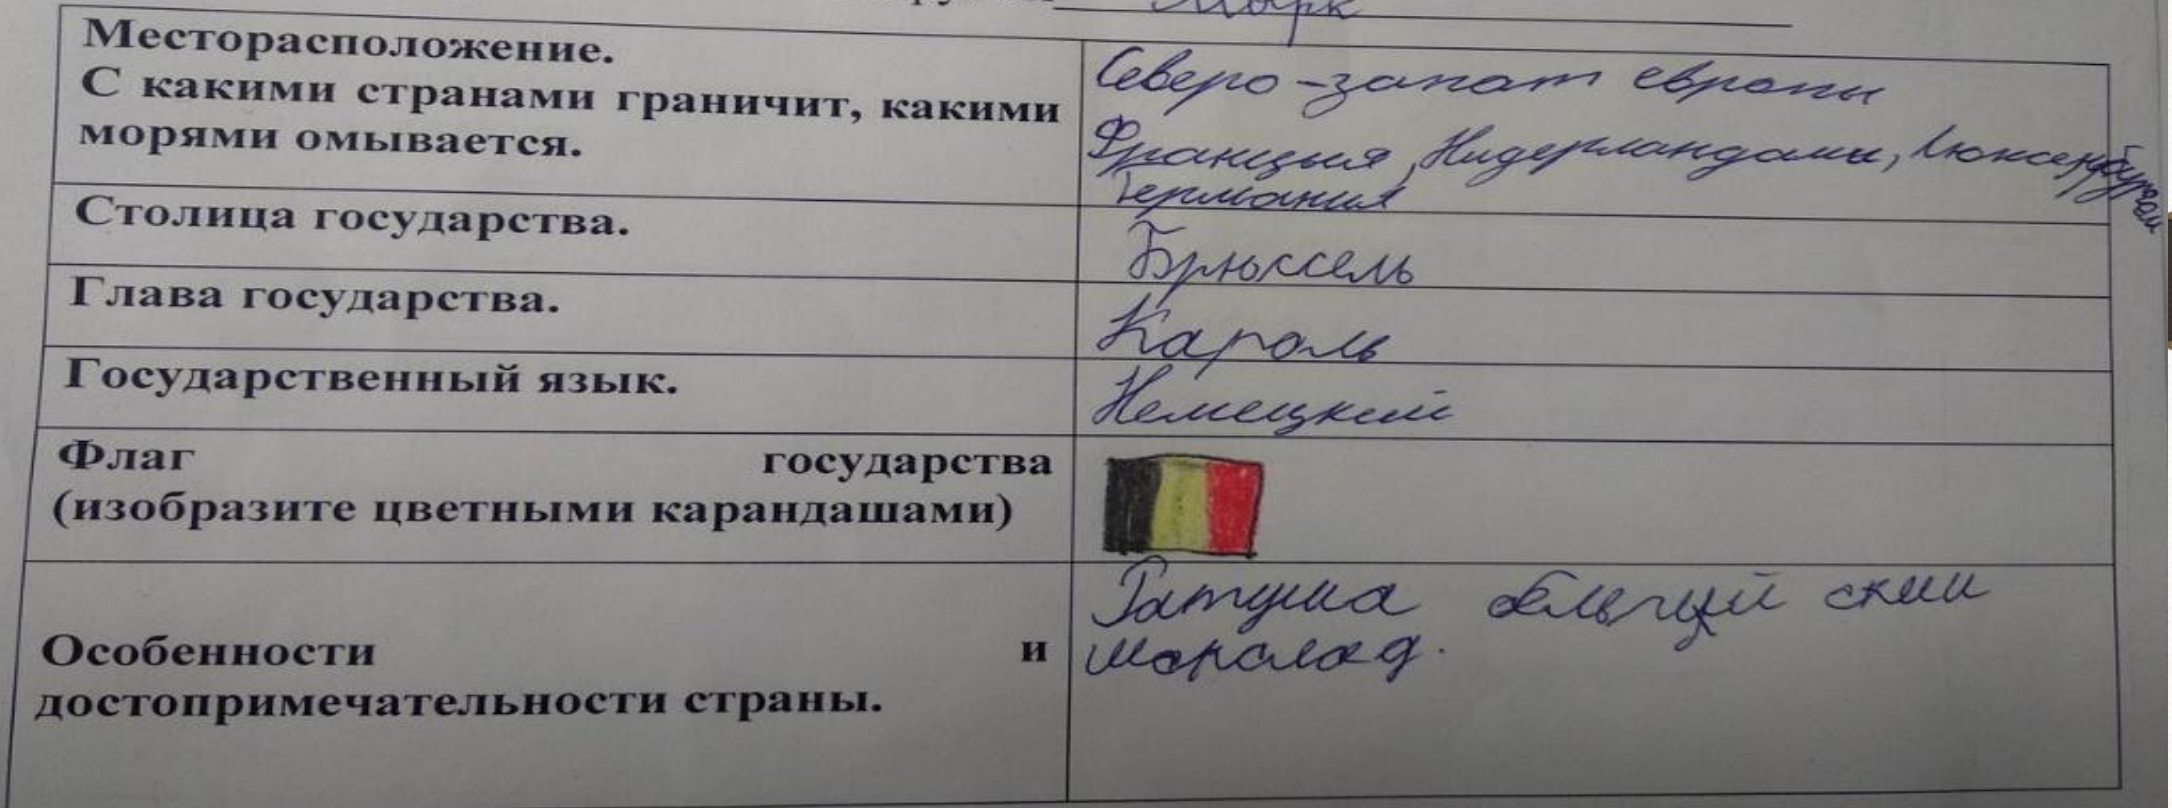 Марк
Месторасположение.
С какими странами граничит, какими
морями омывается.
Северо-запат европы
Францыя, Нидерландами, Люксембургом
Германия
Столица государства.
Брюссель
Глава государства.
Кароль
Государственный язык.
Немецкий
Флаг государства
(изобразите цветными карандашами)
Особенности и
достопримечательности страны.
Ратуша бельгий ский